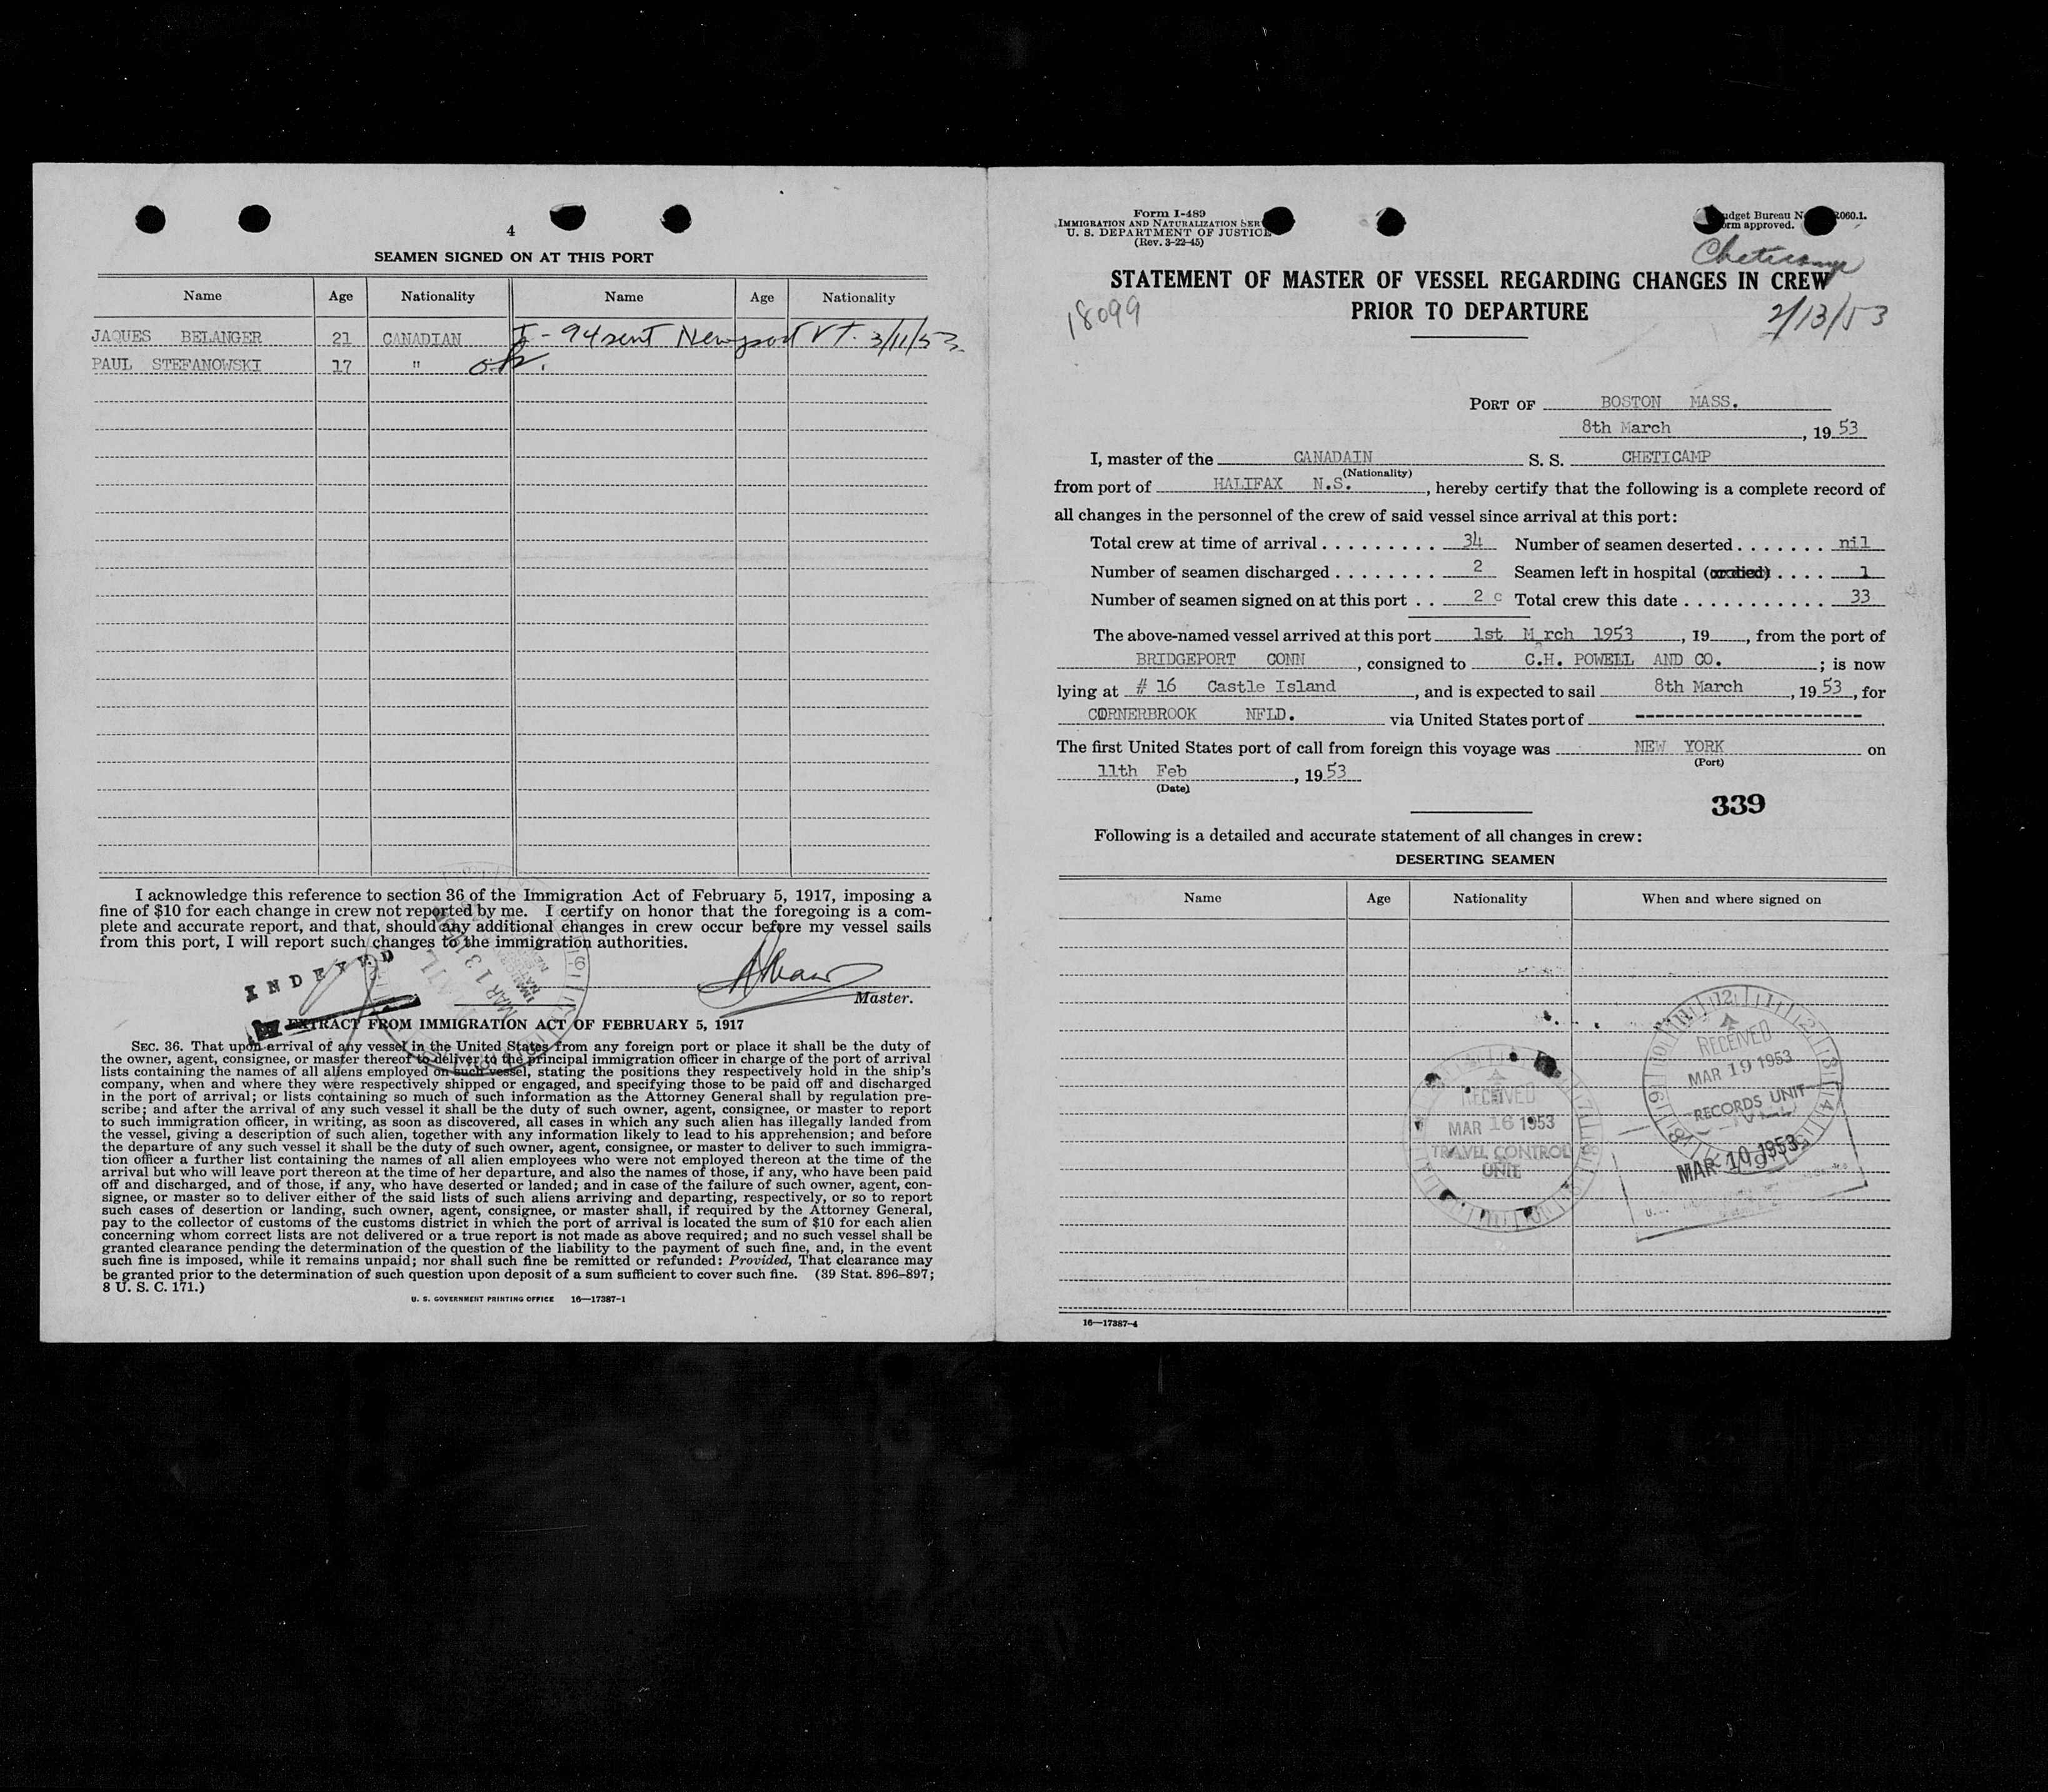 4
SEAMEN SIGNED ON AT THIS PORT
Name Age Nationality Name Age Nationality
JAQUES BELANGER 21 CANADIAN I-94 sent Newport Vt. 3/11/53
PAUL STEFANOWSKI 17 " o.k.
I acknowledge this reference to section 36 of the Immigration Act of February 5, 1917, imposing a
fine of $10 for each change in crew not reported by me. I certify on honor that the foregoing is a com-
plete and accurate report, and that, should any additional changes in crew occur before my vessel sails
from this port, I will report such changes to the immigration authorities.
INDEXED
MAR 13
Master.
EXTRACT FROM IMMIGRATION ACT OF FEBRUARY 5, 1917
SEC. 36. That upon arrival of any vessel in the United States from any foreign port or place it shall be the duty of
the owner, agent, consignee, or master thereof to deliver to the principal immigration officer in charge of the port of arrival
lists containing the names of all aliens employed on such vessel, stating the positions they respectively hold in the ship's
company, when and where they were respectively shipped or engaged, and specifying those to be paid off and discharged
in the port of arrival; or lists containing so much of such information as the Attorney General shall by regulation pre-
scribe; and after the arrival of any such vessel it shall be the duty of such owner, agent, consignee, or master to report
to such immigration officer, in writing, as soon as discovered, all cases in which any such alien has illegally landed from
the vessel, giving a description of such alien, together with any information likely to lead to his apprehension; and before
the departure of any such vessel it shall be the duty of such owner, agent, consignee, or master to deliver to such immigra-
tion officer a further list containing the names of all alien employees who were not employed thereon at the time of the
arrival but who will leave port thereon at the time of her departure, and also the names of those, if any, who have been paid
off and discharged, and of those, if any, who have deserted or landed; and in case of the failure of such owner, agent, con-
signee, or master so to deliver either of the said lists of such aliens arriving and departing, respectively, or so to report
such cases of desertion or landing, such owner, agent, consignee, or master shall, if required by the Attorney General,
pay to the collector of customs of the customs district in which the port of arrival is located the sum of $10 for each alien
concerning whom correct lists are not delivered or a true report is not made as above required; and no such vessel shall be
granted clearance pending the determination of the question of the liability to the payment of such fine, and, in the event
such fine is imposed, while it remains unpaid; nor shall such fine be remitted or refunded: Provided, That clearance may
be granted prior to the determination of such question upon deposit of a sum sufficient to cover such fine. (39 Stat. 896-897;
8 U. S. C. 171.)
U. S. GOVERNMENT PRINTING OFFICE 16—17387-1
Form I-489
IMMIGRATION AND NATURALIZATION SER
U. S. DEPARTMENT OF JUSTICE
(Rev. 3-22-45)
udget Bureau N 2060.1.
orm approved.
Cheticamp
STATEMENT OF MASTER OF VESSEL REGARDING CHANGES IN CREW
PRIOR TO DEPARTURE
18099
2/13/53
PORT OF BOSTON MASS.
8th March, 1953
I, master of the CANADAIN S. S. CHETICAMP
(Nationality)
from port of HALIFAX N.S., hereby certify that the following is a complete record of
all changes in the personnel of the crew of said vessel since arrival at this port:
Total crew at time of arrival . . . . . . . . . 34 Number of seamen deserted . . . . . . . nil
Number of seamen discharged . . . . . . . . 2 Seamen left in hospital (or died) . . . . 1
Number of seamen signed on at this port . . 2 c Total crew this date . . . . . . . . . . . 33
The above-named vessel arrived at this port 1st M rch 1953, 19 , from the port of
BRIDGEPORT CONN, consigned to C.H. POWELL AND CO.; is now
lying at # 16 Castle Island, and is expected to sail 8th March, 1953, for
CORNERBROOK NFLD. via United States port of -----------------------
The first United States port of call from foreign this voyage was NEW YORK on
(Port)
11th Feb, 1953
(Date)
339
Following is a detailed and accurate statement of all changes in crew:
DESERTING SEAMEN
Name Age Nationality When and where signed on
RECEIVED
MAR 19 1953
RECORDS UNIT
RECEIVED
MAR 16 1953
TRAVEL CONTROL
UNIT
MAR 10 1953
16—17387-4